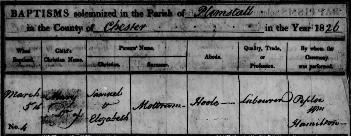 BAPTISMS solemnized in the Parish of Plemstall
in the County of Chester in the Year 1826
When Baptized. Child's Christian Name. Parents' Name. Abode. Quality, Trade, or Profession. By whom the Ceremony was performed.
Christian. Surname.
March 5th Samuel & Elizabeth Mottram Hoole Labourer
No. 4 Hamilton